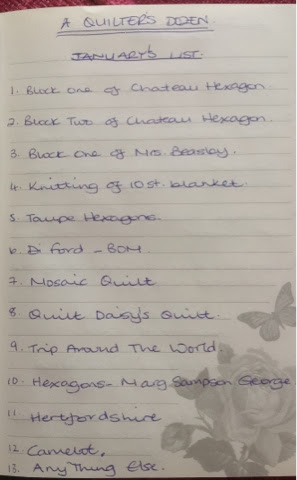 A QUILTER'S DOZEN.
JANUARY'S LIST.
1. Block one of Chateau Hexagon.
2. Block Two of Chateau Hexagon.
3. Block One of Mrs. Beasley.
4. Knitting of 10 st. blanket.
5. Taupe Hexagons.
6. Di Ford - BOM.
7. Mosaic Quilt
8. Quilt Daisy's Quilt.
9. Trip Around The World.
10. Hexagons - Marg Sampson George
11. Hertfordshire
12. Camelot.
13. Any Thing Else.